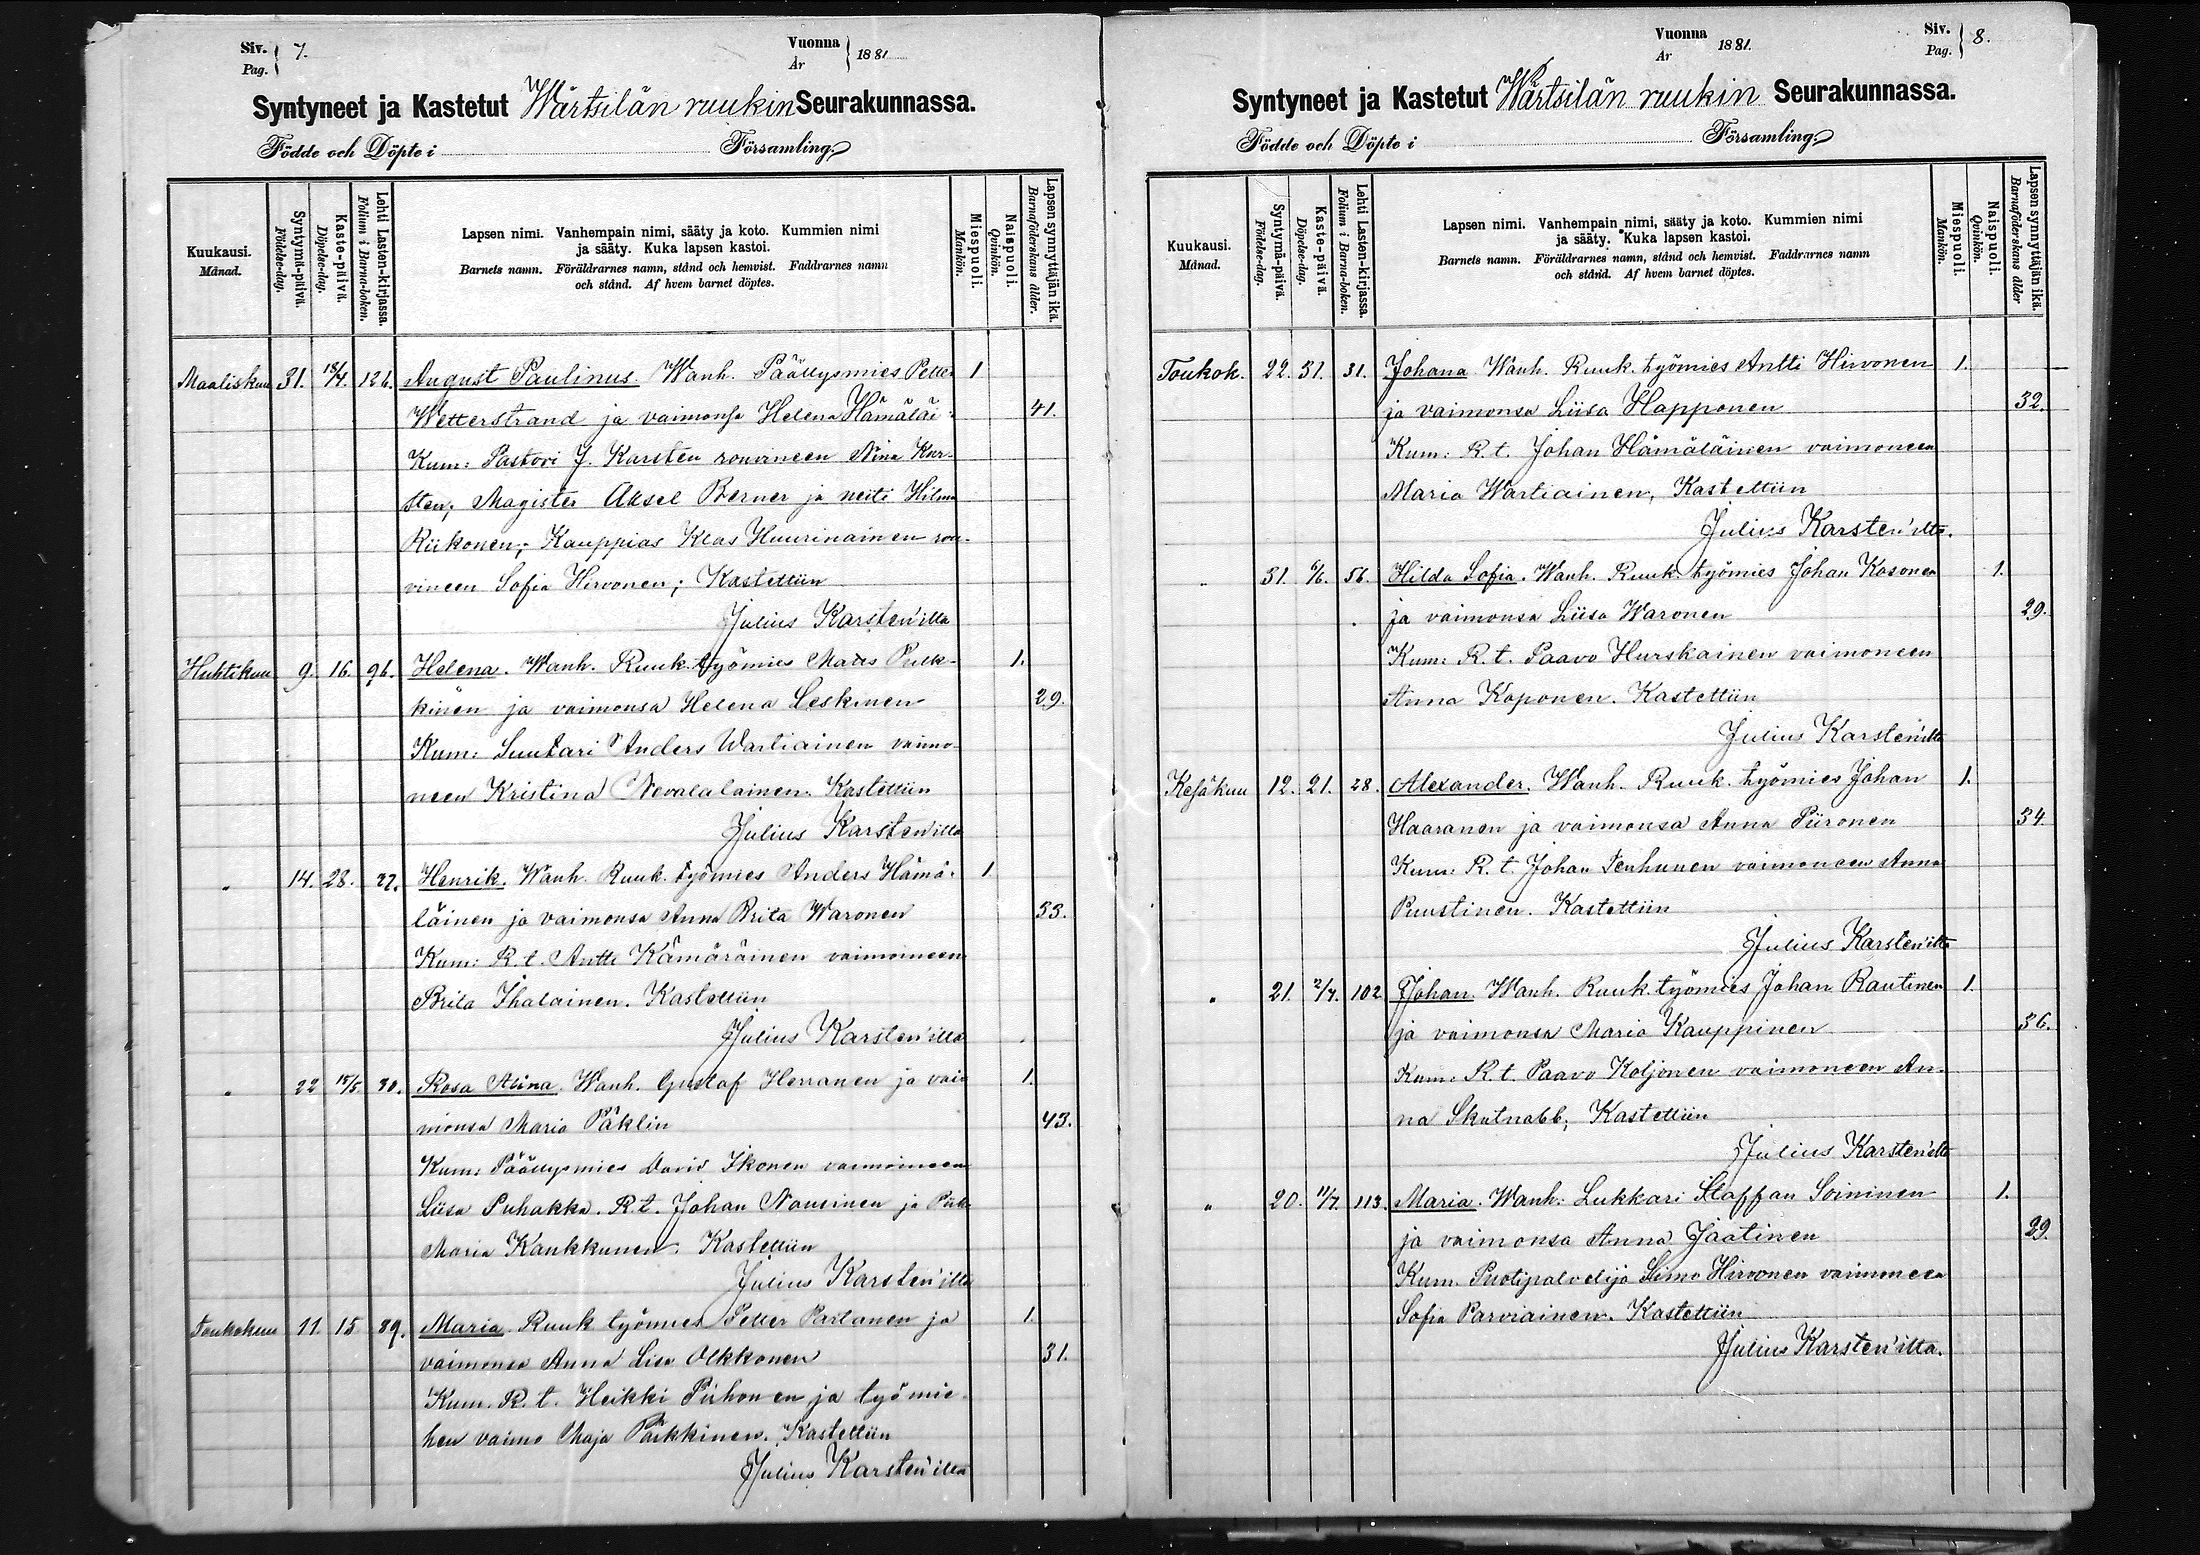 Siv. 7.
Pag.
Vuonna 1881
År
Syntyneet ja Kastetut Wärtsilän ruukin Seurakunnassa.
Födde och Döpte i Församling.
Kuukausi.
Månad.
Syntymä-päivä.
Födelse-dag.
Kaste-päivä.
Döpelse-dag.
Lehti Lasten-kirjassa.
Folium i Barna-boken.
Lapsen nimi. Vanhempain nimi, sääty ja koto. Kummien nimi
ja sääty. Kuka lapsen kastoi.
Barnets namn. Föräldrarnes namn, stånd och hemvist. Faddrarnes namn
och stånd. Af hvem barnet döptes.
Miespuoli.
Mankön.
Naispuoli.
Qvinkön.
Lapsen synnyttäjän ikä.
Barnaföderskans ålder.
Maaliskuu 31. 18/4. 126. August Paulinus Wanh. Päällysmies Petter 1
Wetterstrand ja vaimonsa Helena Hämäläi- 41.
Kum: Pastori J. Karsten rouvineen Nina Kar-
sten; Magister Aksel Berner ja neiti Hilma
Riikonen; Kauppias Klas Huurinainen rou-
vineen Sofia Hirvonen; Kastettiin
Julius Karsten'ilta
Huhtikuu 9. 16. 96. Helena. Wanh. Ruuk. työmies Mats Pulk- 1.
kinen ja vaimonsa Helena Leskinen 29.
Kum: Suutari Anders Wartiainen vaimo-
neen Kristina Nevalalainen. Kastettiin
Julius Karsten'ilta
" 14. 28. 27. Henrik. Wanh. Ruuk. työmies Anders Hämä- 1
läinen ja vaimonsa Anna Brita Waronen 33.
Kum: R. t. Antti Kämäräinen vaimoineen
Brita Ihalainen. Kastettiin
Julius Karsten'ilta
" 22 15/5 30. Rosa Alina. Wanh. Gustaf Herranen ja vai- 1.
monsa Maria Päklin 43.
Kum: Päällysmies David Ikonen vaimoineen
Liisa Puhakka. R. t. Johan Nousinen ja
Maria Kankkunen. Kastettiin
Julius Karsten'ilta
Toukokuu 11. 15 89. Maria. Ruuk työmies Petter Partanen ja 1.
vaimonsa Anna Lisa Olkkonen 31.
Kum. R. t. Heikki Piihonen ja työmie-
hen vaimo Maja Pärkkinen. Kastettiin
Julius Karsten'ilta
Vuonna 1881.
År
Siv. 8.
Pag.
Syntyneet ja Kastetut Wärtsilän ruukin Seurakunnassa.
Födde och Döpte i Församling.
Kuukausi.
Månad.
Syntymä-päivä.
Födelse-dag.
Kaste-päivä.
Döpelse-dag.
Lehti Lasten-kirjassa.
Folium i Barna-boken.
Lapsen nimi. Vanhempain nimi, sääty ja koto. Kummien nimi
ja sääty. Kuka lapsen kastoi.
Barnets namn. Föräldrarnes namn, stånd och hemvist. Faddrarnes namn
och stånd. Af hvem barnet döptes.
Miespuoli.
Mankön.
Naispuoli.
Qvinkön.
Lapsen synnyttäjän ikä.
Barnaföderskans ålder
Toukok. 22. 31. 31. Johana Wanh. Ruuk. työmies Antti Hirvonen 1.
ja vaimonsa Liisa Happonen 32.
Kum: R. t. Johan Hämäläinen vaimoneen
Maria Wartiainen, Kastettiin
Julius Karsten'ilta.
" 31. 6/6. 56. Hilda Sofia. Wanh. Ruuk. työmies Johan Kosonen 1.
ja vaimonsa Liisa Waronen 29.
Kum: R. t. Paavo Hurskainen vaimoneen
Anna Koponen. Kastettiin
Julius Karsten'ilta
Kesäkuu 12. 21. 28. Alexander. Wanh. Ruuk. työmies Johan 1.
Haaranen ja vaimonsa Anna Piironen 34
Kum: R. t. Johan Tenhunen vaimoneen Anna
Puustinen. Kastettiin
Julius Karsten'ilta
" 21. 2/7. 102 Johan. Wanh. Ruuk. työmies Johan Rautinen 1.
ja vaimonsa Maria Kauppinen 36.
Kum: R. t. Paavo Koljonen vaimoneen An-
na Skutnabb; Kastettiin
Julius Karsten'ilta
" 20. 11/7. 113. Maria. Wanh: Lukkari Staffan Soininen 1.
ja vaimonsa Anna Jaatinen 29.
Kum. Puotipalvelija Simo Hirvonen vaimoneen
Sofia Parviainen. Kastettiin
Julius Karsten'ilta.